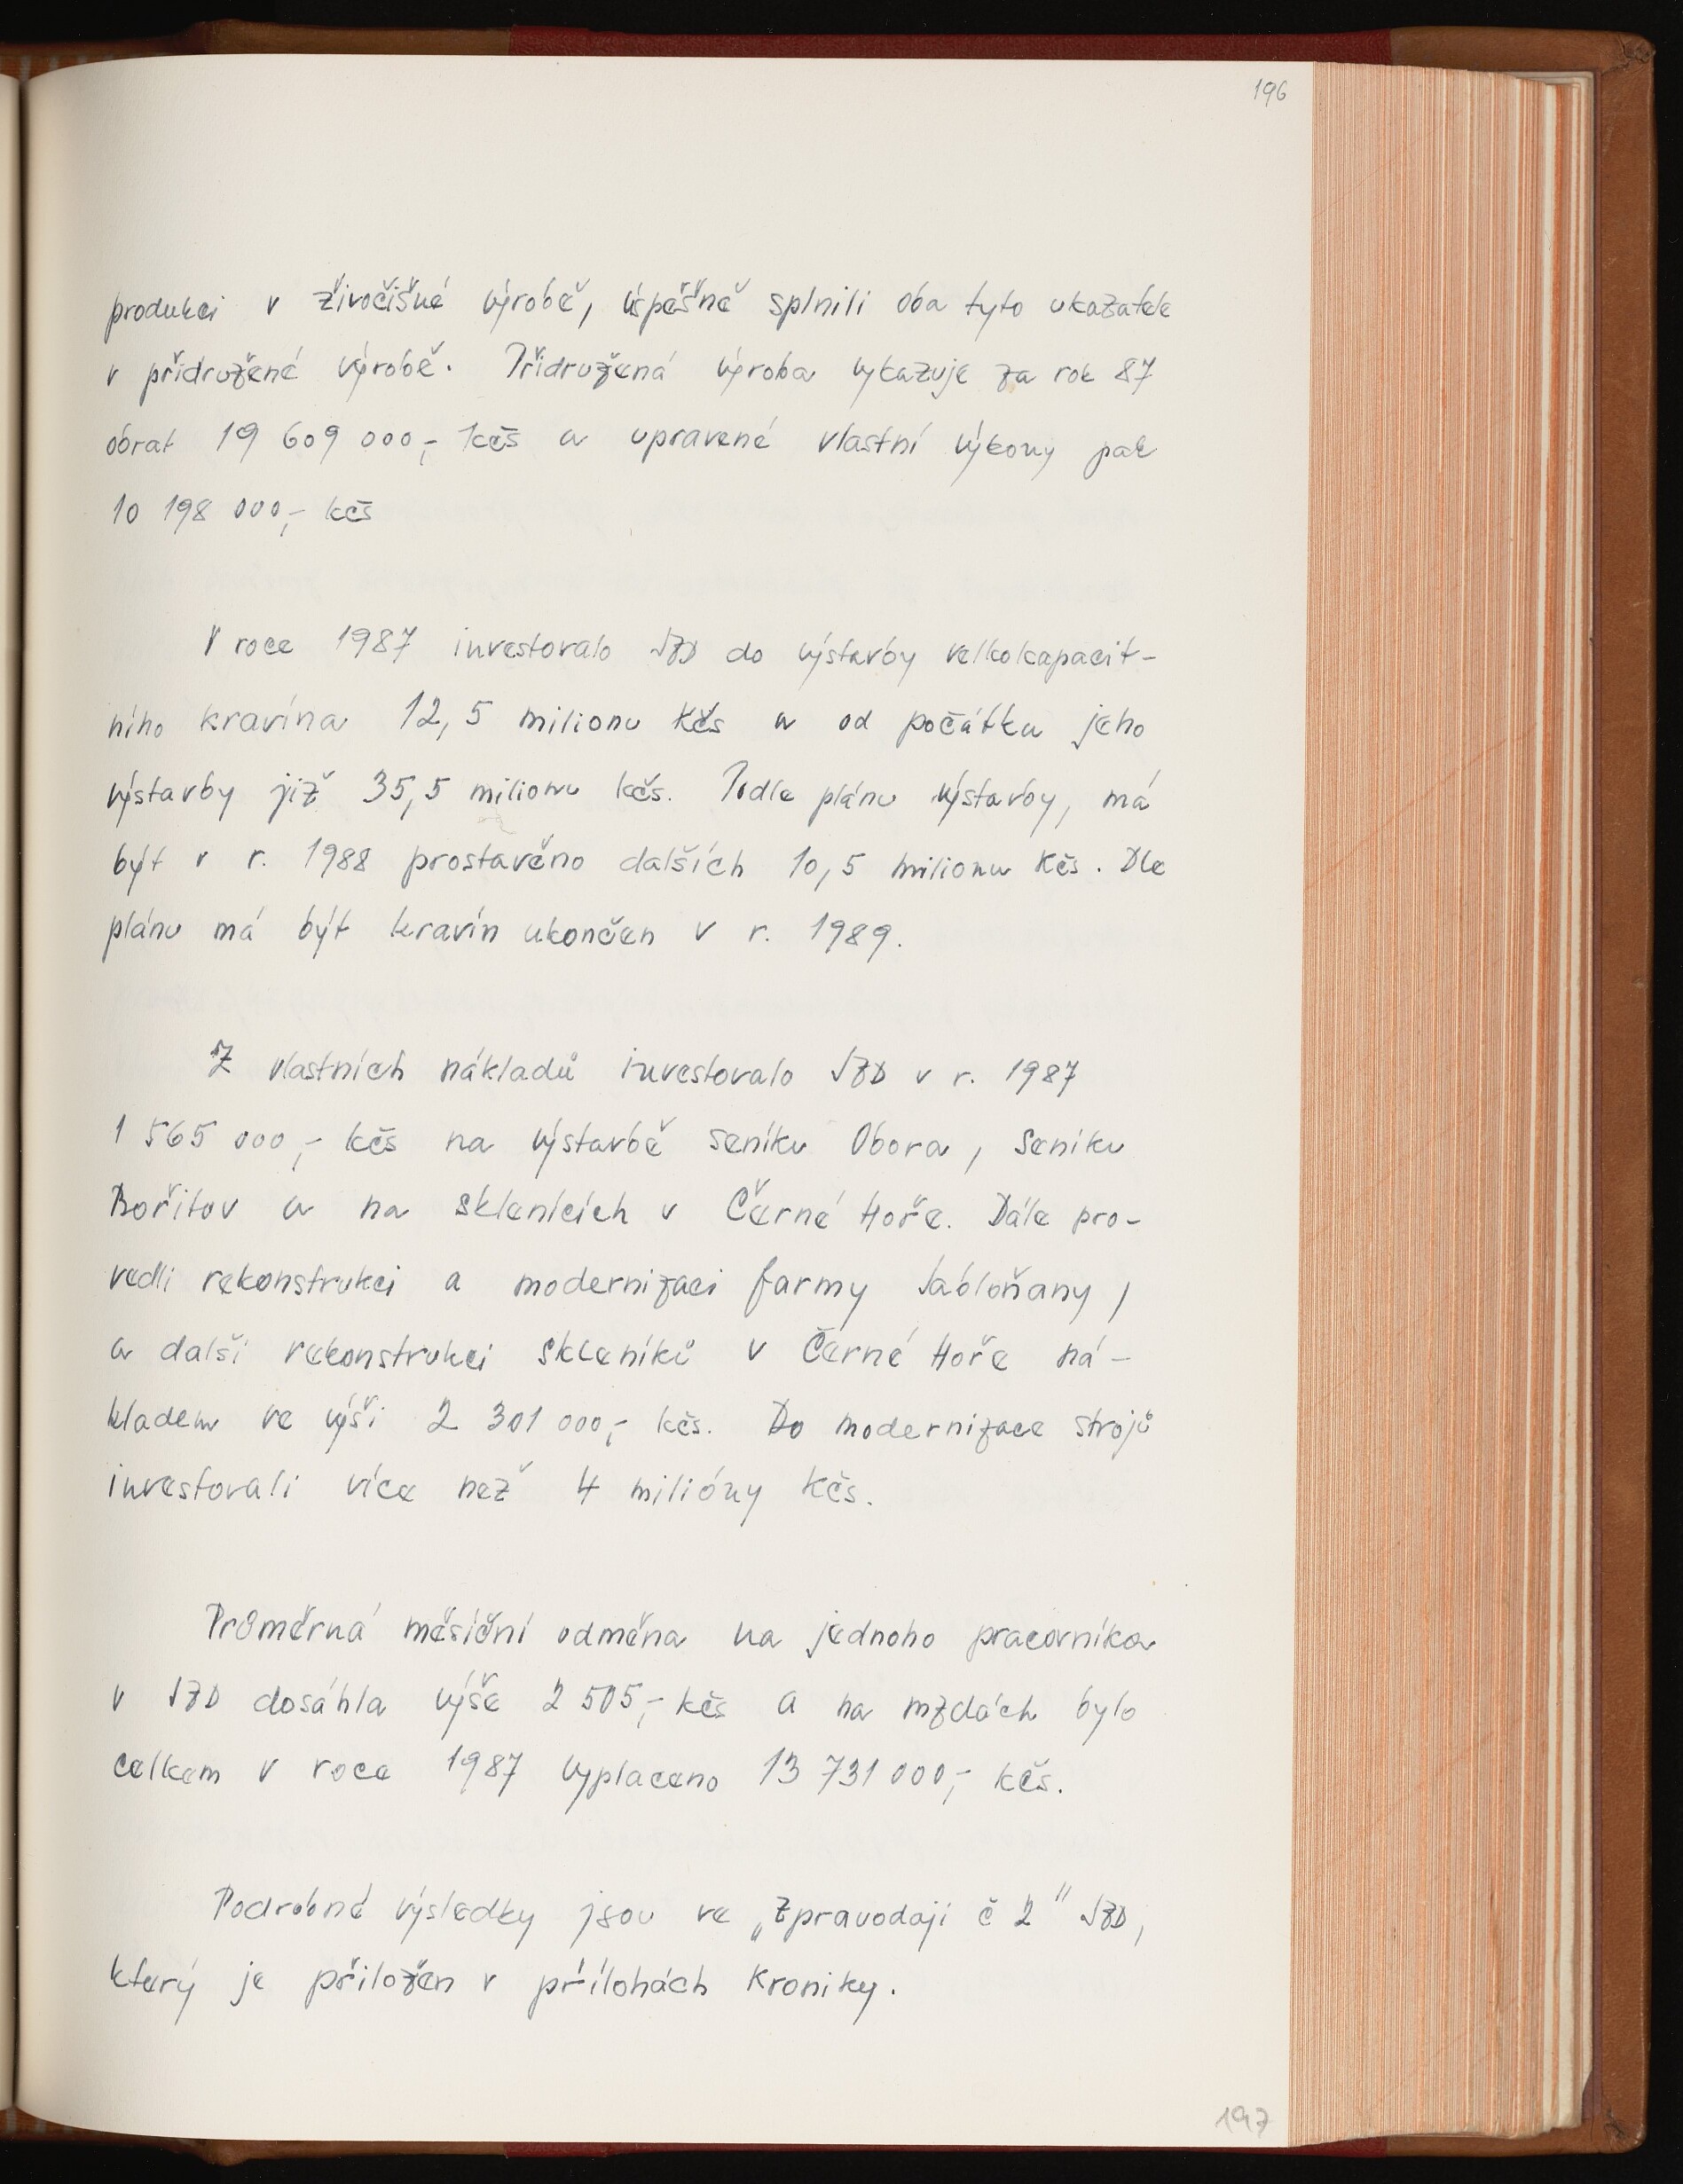 196
produkci v živočišné výrobě, úspěšně splnili oba tyto ukazatele
v přidružené výrobě. Přidružená výroba vykazuje za rok 87
obrat 19 609 000,- kčs a upravené vlastní výkony pak
10 198 000,- kčs
V roce 1987 investovalo JZD do výstavby velkokapacit-
ního kravína 12,5 milionu Kčs a od počátku jeho
výstavby již 35,5 milionu kčs. Podle plánu výstavby, má
být v r. 1988 prostavěno dalších 10,5 milionu Kčs. Dle
plánu má být kravín ukončen v r. 1989.
Z vlastních nákladů investovalo JZD v r. 1987
1 565 000,- kčs na výstavbě seníku Obora, seníku
Bořitov a na sklenících v Černé Hoře. Dále pro-
vedli rekonstrukci a modernizaci farmy Jabloňany,
a další rekonstrukci skleníků v Černé Hoře ná-
kladem ve výši 2 301 000,- kčs. Do modernizace strojů
investovali více než 4 milióny Kčs.
Průměrná měsíční odměna na jednoho pracovníka
v JZD dosáhla výše 2 505,- kčs a na mzdách bylo
celkem v roce 1987 vyplaceno 13 731 000,- kčs.
Podrobné výsledky jsou ve „Zpravodaji č 2" JZD,
který je přiložen v přílohách kroniky.
197